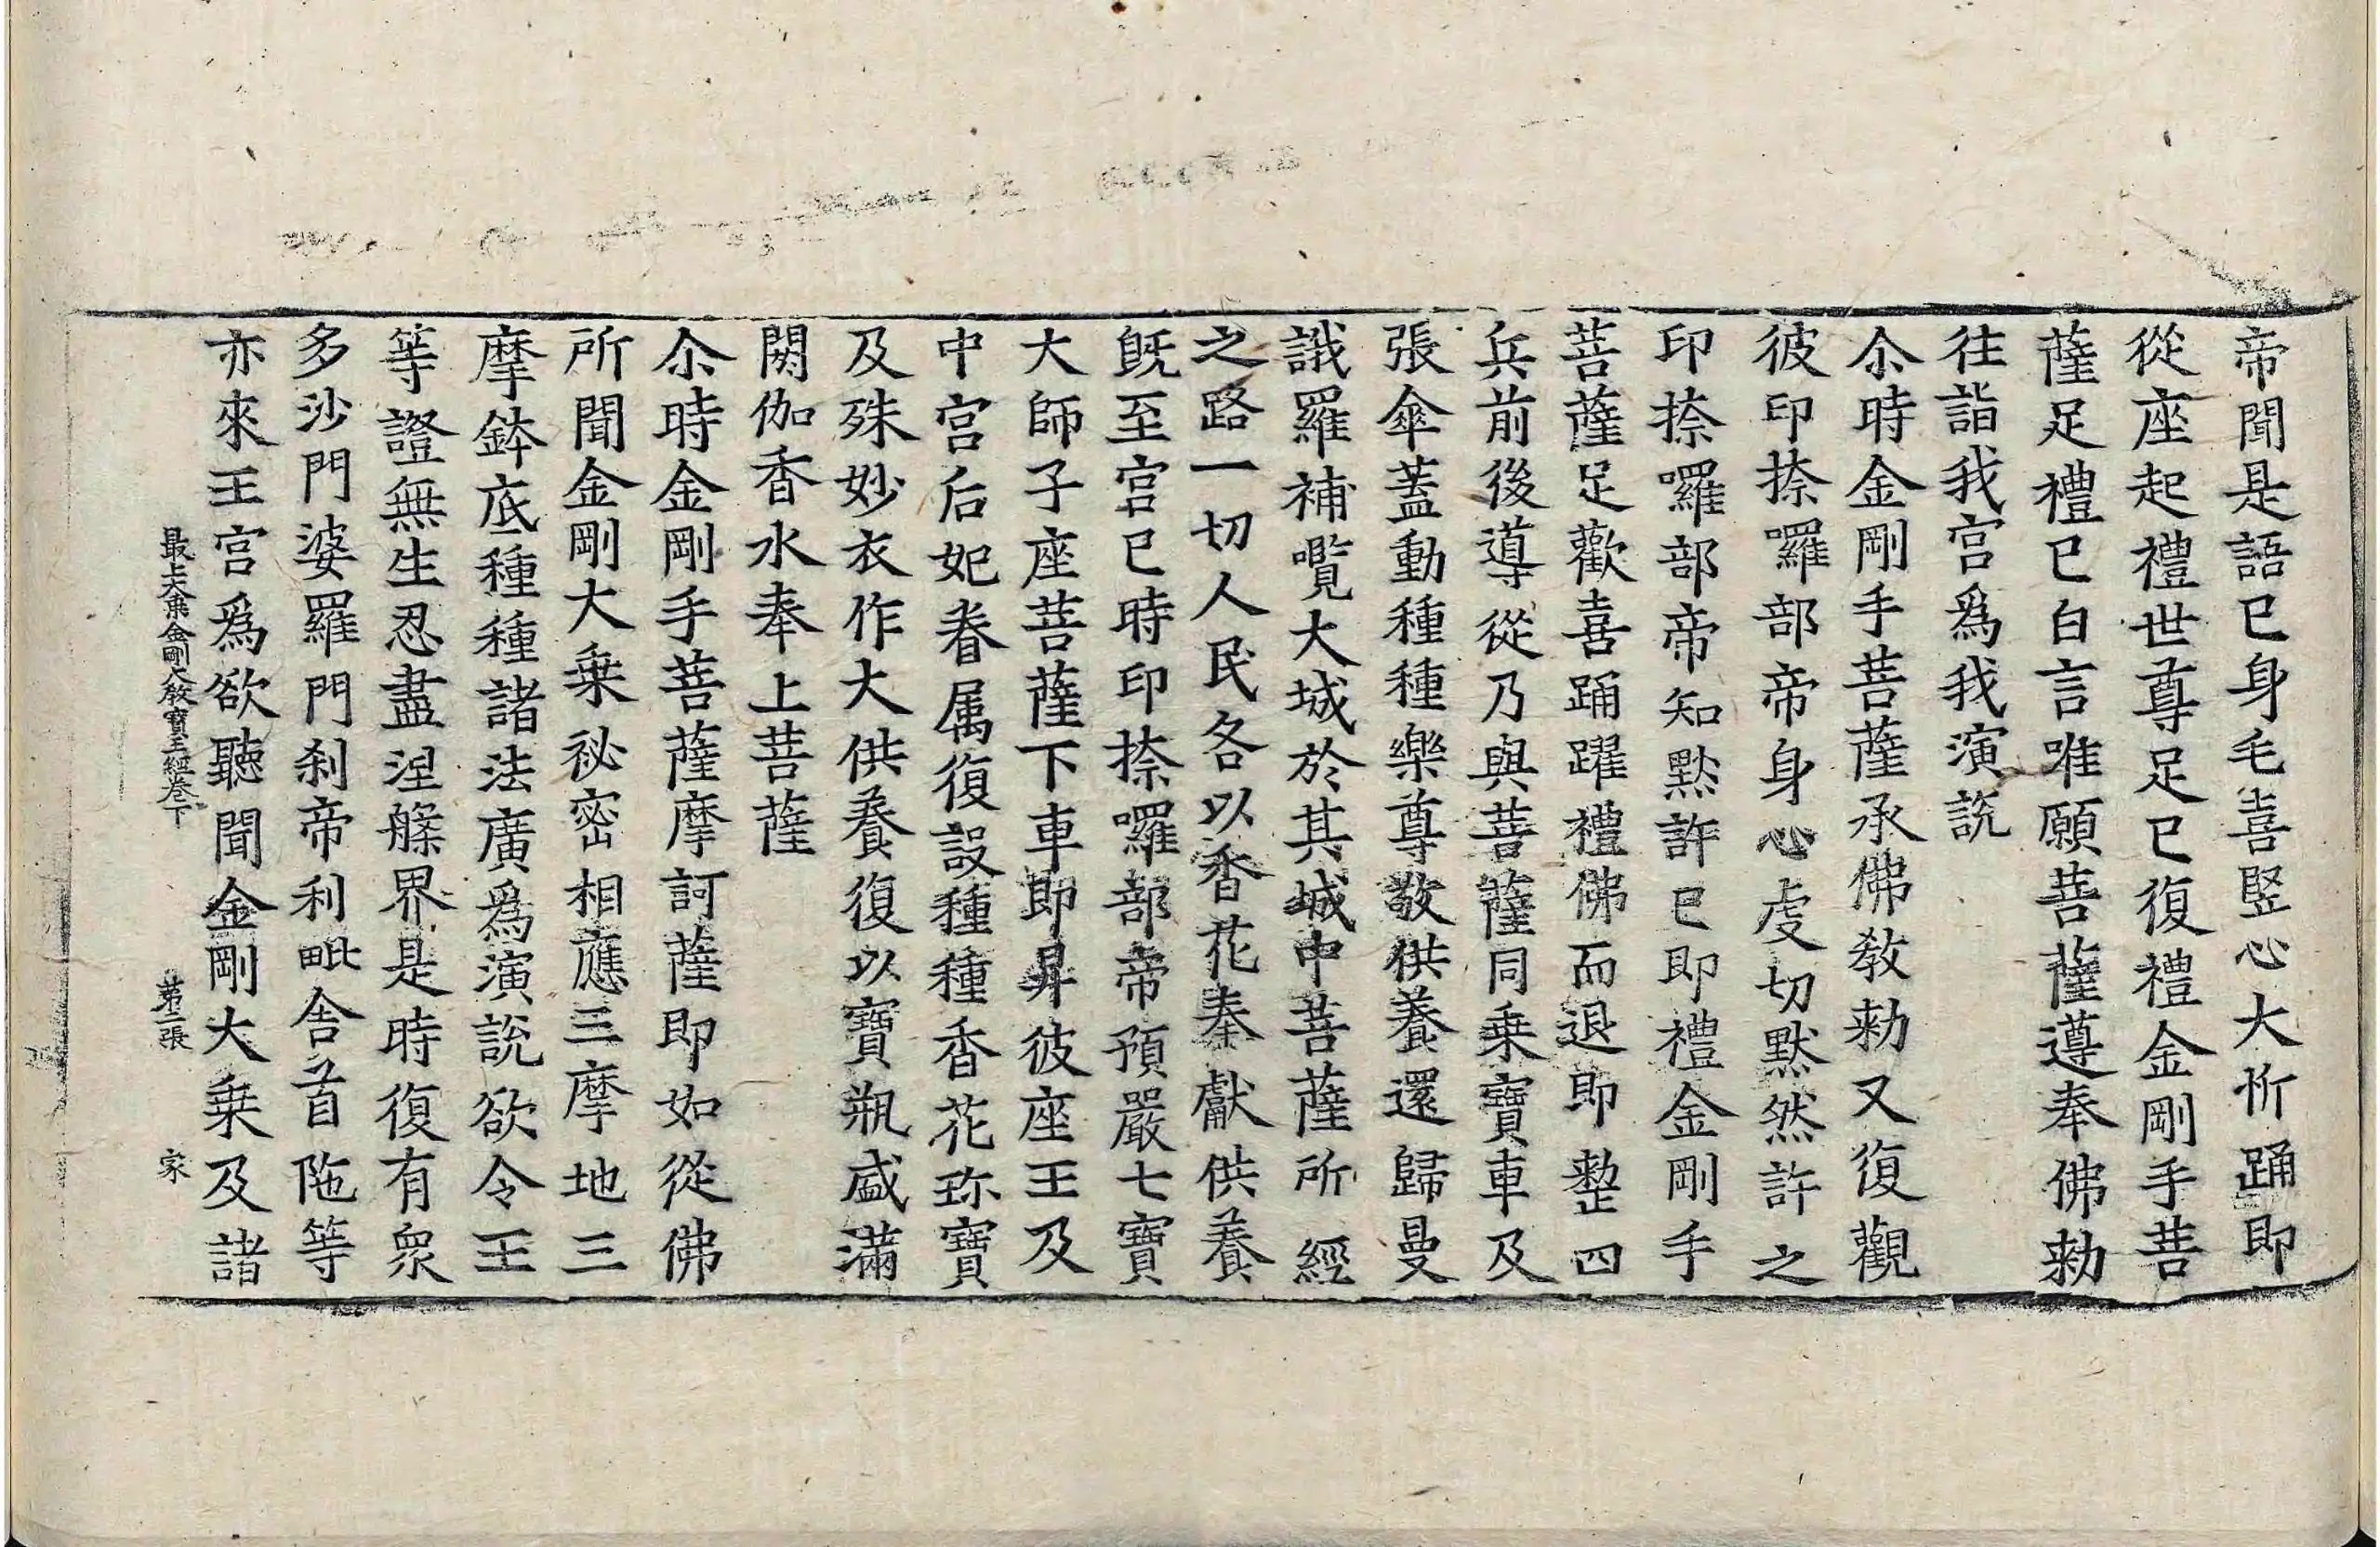 帝聞是語已身毛喜竪心大忻踊即
從座起禮世尊足已復禮金剛手菩
薩足禮已白言唯願菩薩遵奉佛勑
往詣我宮爲我演說
尒時金剛手菩薩承佛教勑又復觀
彼印捺囉部帝身心虔切黙然許之
印捺囉部帝知黙許已即禮金剛手
菩薩足歡喜踊躍禮佛而退即整四
兵前後導從乃與菩薩同乗寶車及
張傘蓋動種種樂尊敬供養還歸曼
誐羅補嚂大城於其城中菩薩所經
之路一切人民各以香花奉獻供養
旣至宮已時印捺囉部帝預嚴七寶
大師子座菩薩下車即昇彼座王及
中宮后妃眷属復設種種香花珎寶
及殊妙衣作大供養復以寶瓶盛滿
閼伽香水奉上菩薩
尒時金剛手菩薩摩訶薩即如從佛
所聞金剛大乗祕密相應三摩地三
摩鉢底種種諸法廣爲演說欲令王
等證無生忍盡涅槃界是時復有衆
多沙門婆羅門刹帝利毗舎首陁等
亦來王宮爲欲聽聞金剛大乗及諸
最上大乗金剛大教寶王經卷下 第二張 家